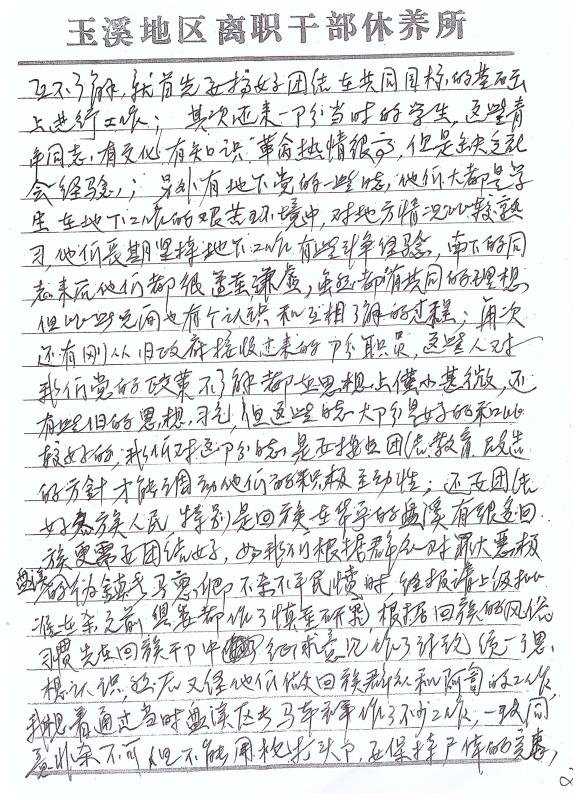 玉溪地区离职干部休养所
互不了解，就首先要搞好团结在共同目标的基础
上进行工作；其次还来一部分当时的学生，这些青
年同志，有文化有知识革命热情很高，但是缺乏社
会经验；另外有地下党的一些同志，他们大都是学
生在地下工作的艰苦环境中，对地方情况比较熟
习，他们长期坚持地下工作有些斗争经验，南下的同
志来后他们都很尊重谦虚，虽然都有共同的理想
但彼此间也有个认识和互相了解的过程；再次
还有刚从旧政府接收过来的部分职员，这些人对
我们党的政策不了解都在思想上
有些旧的思想，习气，但这些同志大部分是好的和比
较好的，我们对这部分同志是要按照团结教育改造
的方针才能调动他们的积极主动性；还要团结
好各族人民，特别是回族在华宁的盘溪有很多回
族更需要团结好，如我们根据群众对罪大恶极
盘溪的伪镇长马 不杀不平民愤时，经报请上级批
准在杀之前，县委都作了慎重研究，根据回族的风俗
习惯先在回族干部中征求意见作了讨论统一了思
想认识，然后又经他们做回族群众和阿訇的工作，
通过当时盘溪区长马 作了不少工作，一致同
意非杀不可但不能用枪打头部，要保持尸体的完整，
2.